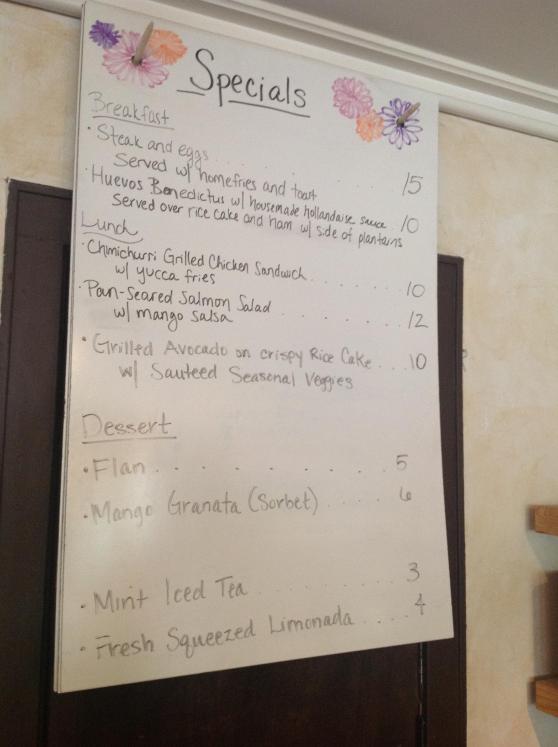 Specials
Breakfast
· Steak and eggs
Served w/ homefries and toast . . . 15
· Huevos Benedictus w/ housemade hollandaise sauce 10
Served over rice cake and ham w/ side of plantains
Lunch
· Chimichurri Grilled Chicken Sandwich . . . . . . . 10
w/ yucca fries
· Pan-Seared Salmon Salad . . . . . . . 12
w/ mango salsa
· Grilled Avocado on crispy Rice Cake . . . 10
w/ Sauteed Seasonal Veggies
Dessert
· Flan . . . . . . . . . 5
· Mango Granata (Sorbet) . . . . 6
· Mint Iced Tea . . . . . . . . 3
· Fresh Squeezed Limonada . . . . 4